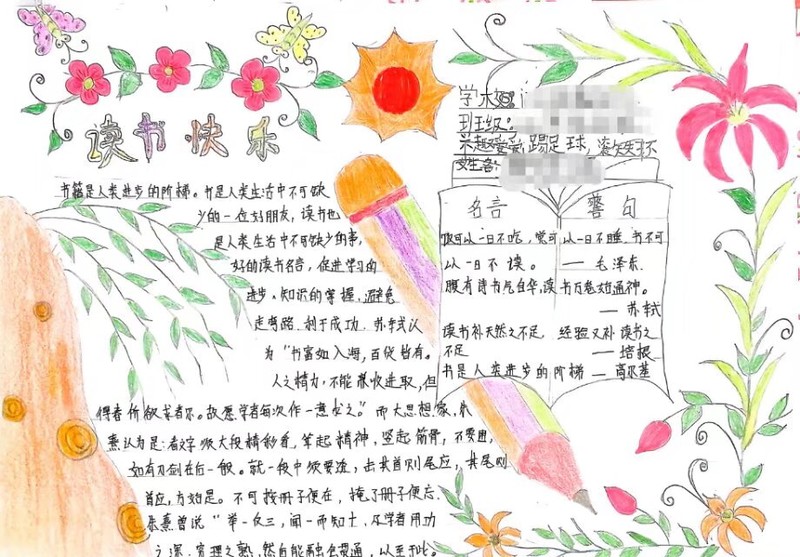 读书快乐
学校:
班级:
兴趣爱好:踢足球,滚矢杯
姓名:
书籍是人类进步的阶梯。书是人类生活中不可缺
少的一位好朋友,读书也
是人类生活中不可缺少的事,
好的读书名言,促进学习的
进步,知识的掌握,避免
走弯路,利于成功.苏轼认
为"书富如入海,百货皆有。
人之精力,不能兼收进取,但
得春所叙求者尔。故愿学者每次作一意求之。"而大思想家,朱
熹认为是:看文字须大段精彩看,耸起精神,竖起筋骨,不要困,
如有刀剑在后一般。就一段中须要透,击其首则尾应,击其尾则
首应,方始是。不可按册子便在,掩了册子便忘.
朱熹曾说"举一反三,闻一而知十,及学者用功
之深,穷理之熟,然后能融会贯通,以至于此。
名言 警句
饭可以一日不吃,觉可以一日不睡,书不可
以一日不读。——毛泽东.
腹有诗书气自华,读书万卷始通神。
——苏轼
读书补天然之不足,经验又补读书之
不足 ——培根
书是人类进步的阶梯——高尔基